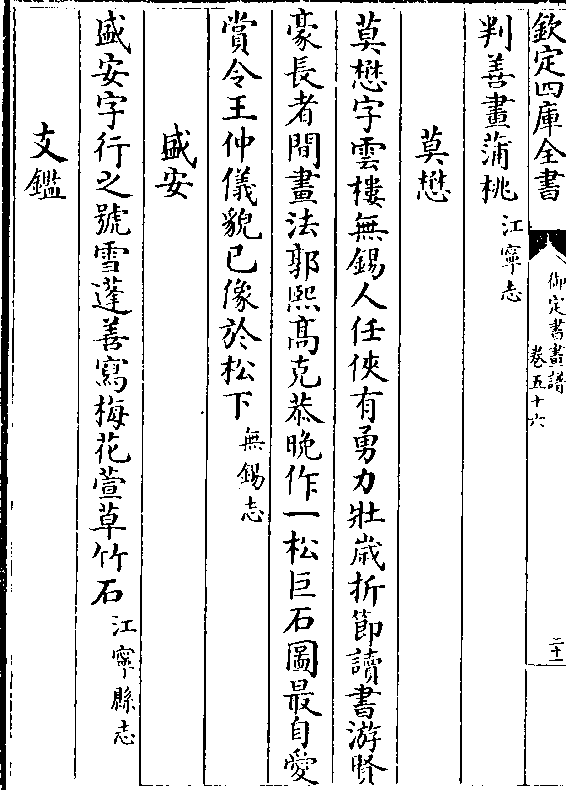 欽定四庫全書
御定書畫譜
卷五十六
二十一
判善畫蒲桃江寧志
莫懋
莫懋字雲樓無錫人任俠有勇力壯歲折節讀書游賢
豪長者間畫法郭熙髙克恭晚作一松巨石圖最自愛
賞令王仲儀貌已像於松下無錫志
盛安
盛安字行之號雪蓬善寫梅花萱草竹石江寧縣志
支鑑